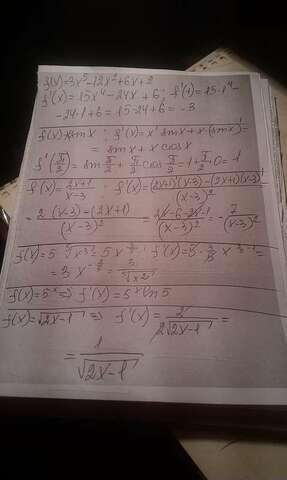 f(x)=3x⁵-12x²+6x+2
f'(x)=15x⁴-24x+6; f'(1)=15·1⁴-
-24·1+6=15-24+6=-3
f(x)=x sin x; f'(x)=x' sin x+x·(sin x)'=
= sin x+x cos x
f'(π/2)= sin π/2+π/2 cos π/2=1+π/2·0=1
f(x)=(2x+1)/(x-3) f'(x)=((2x+1)'(x-3)-(2x+1)(x-3)')/(x-3)²
=(2(x-3)-(2x+1))/(x-3)²=(2x-6-2x-1)/(x-3)²=-7/(x-3)²
f(x)=5 ⁵√x³=5x^(3/5); f'(x)=5·3/5 x^(3/5-1)=
=3x^(-2/5)=3/⁵√x²
f(x)=5ˣ⇒ f'(x)=5ˣ ln5
f(x)=√(2x-1) ⇒ f'(x)=2/(2√(2x-1))=
=1/√(2x-1)